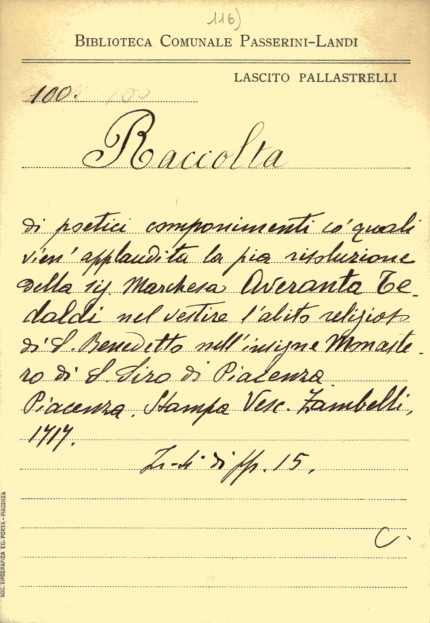 116)
BIBLIOTECA COMUNALE PASSERINI-LANDI
LASCITO PALLASTRELLI
100. 100
Raccolta
di poetici componimenti co' quali
vien' applaudita la pia risoluzione
della sig. Marchesa Averanta Te-
daldi nel vestire l'abito religioso
di S. Benedetto nell'insigne Monaste-
ro di S. Siro di Piacenza
Piacenza. Stampa Vesc. Zambelli,
1717.
In-4 di pp. 15.
C.
SOC. TIPOGRAFICA ED. PORTA - PIACENZA